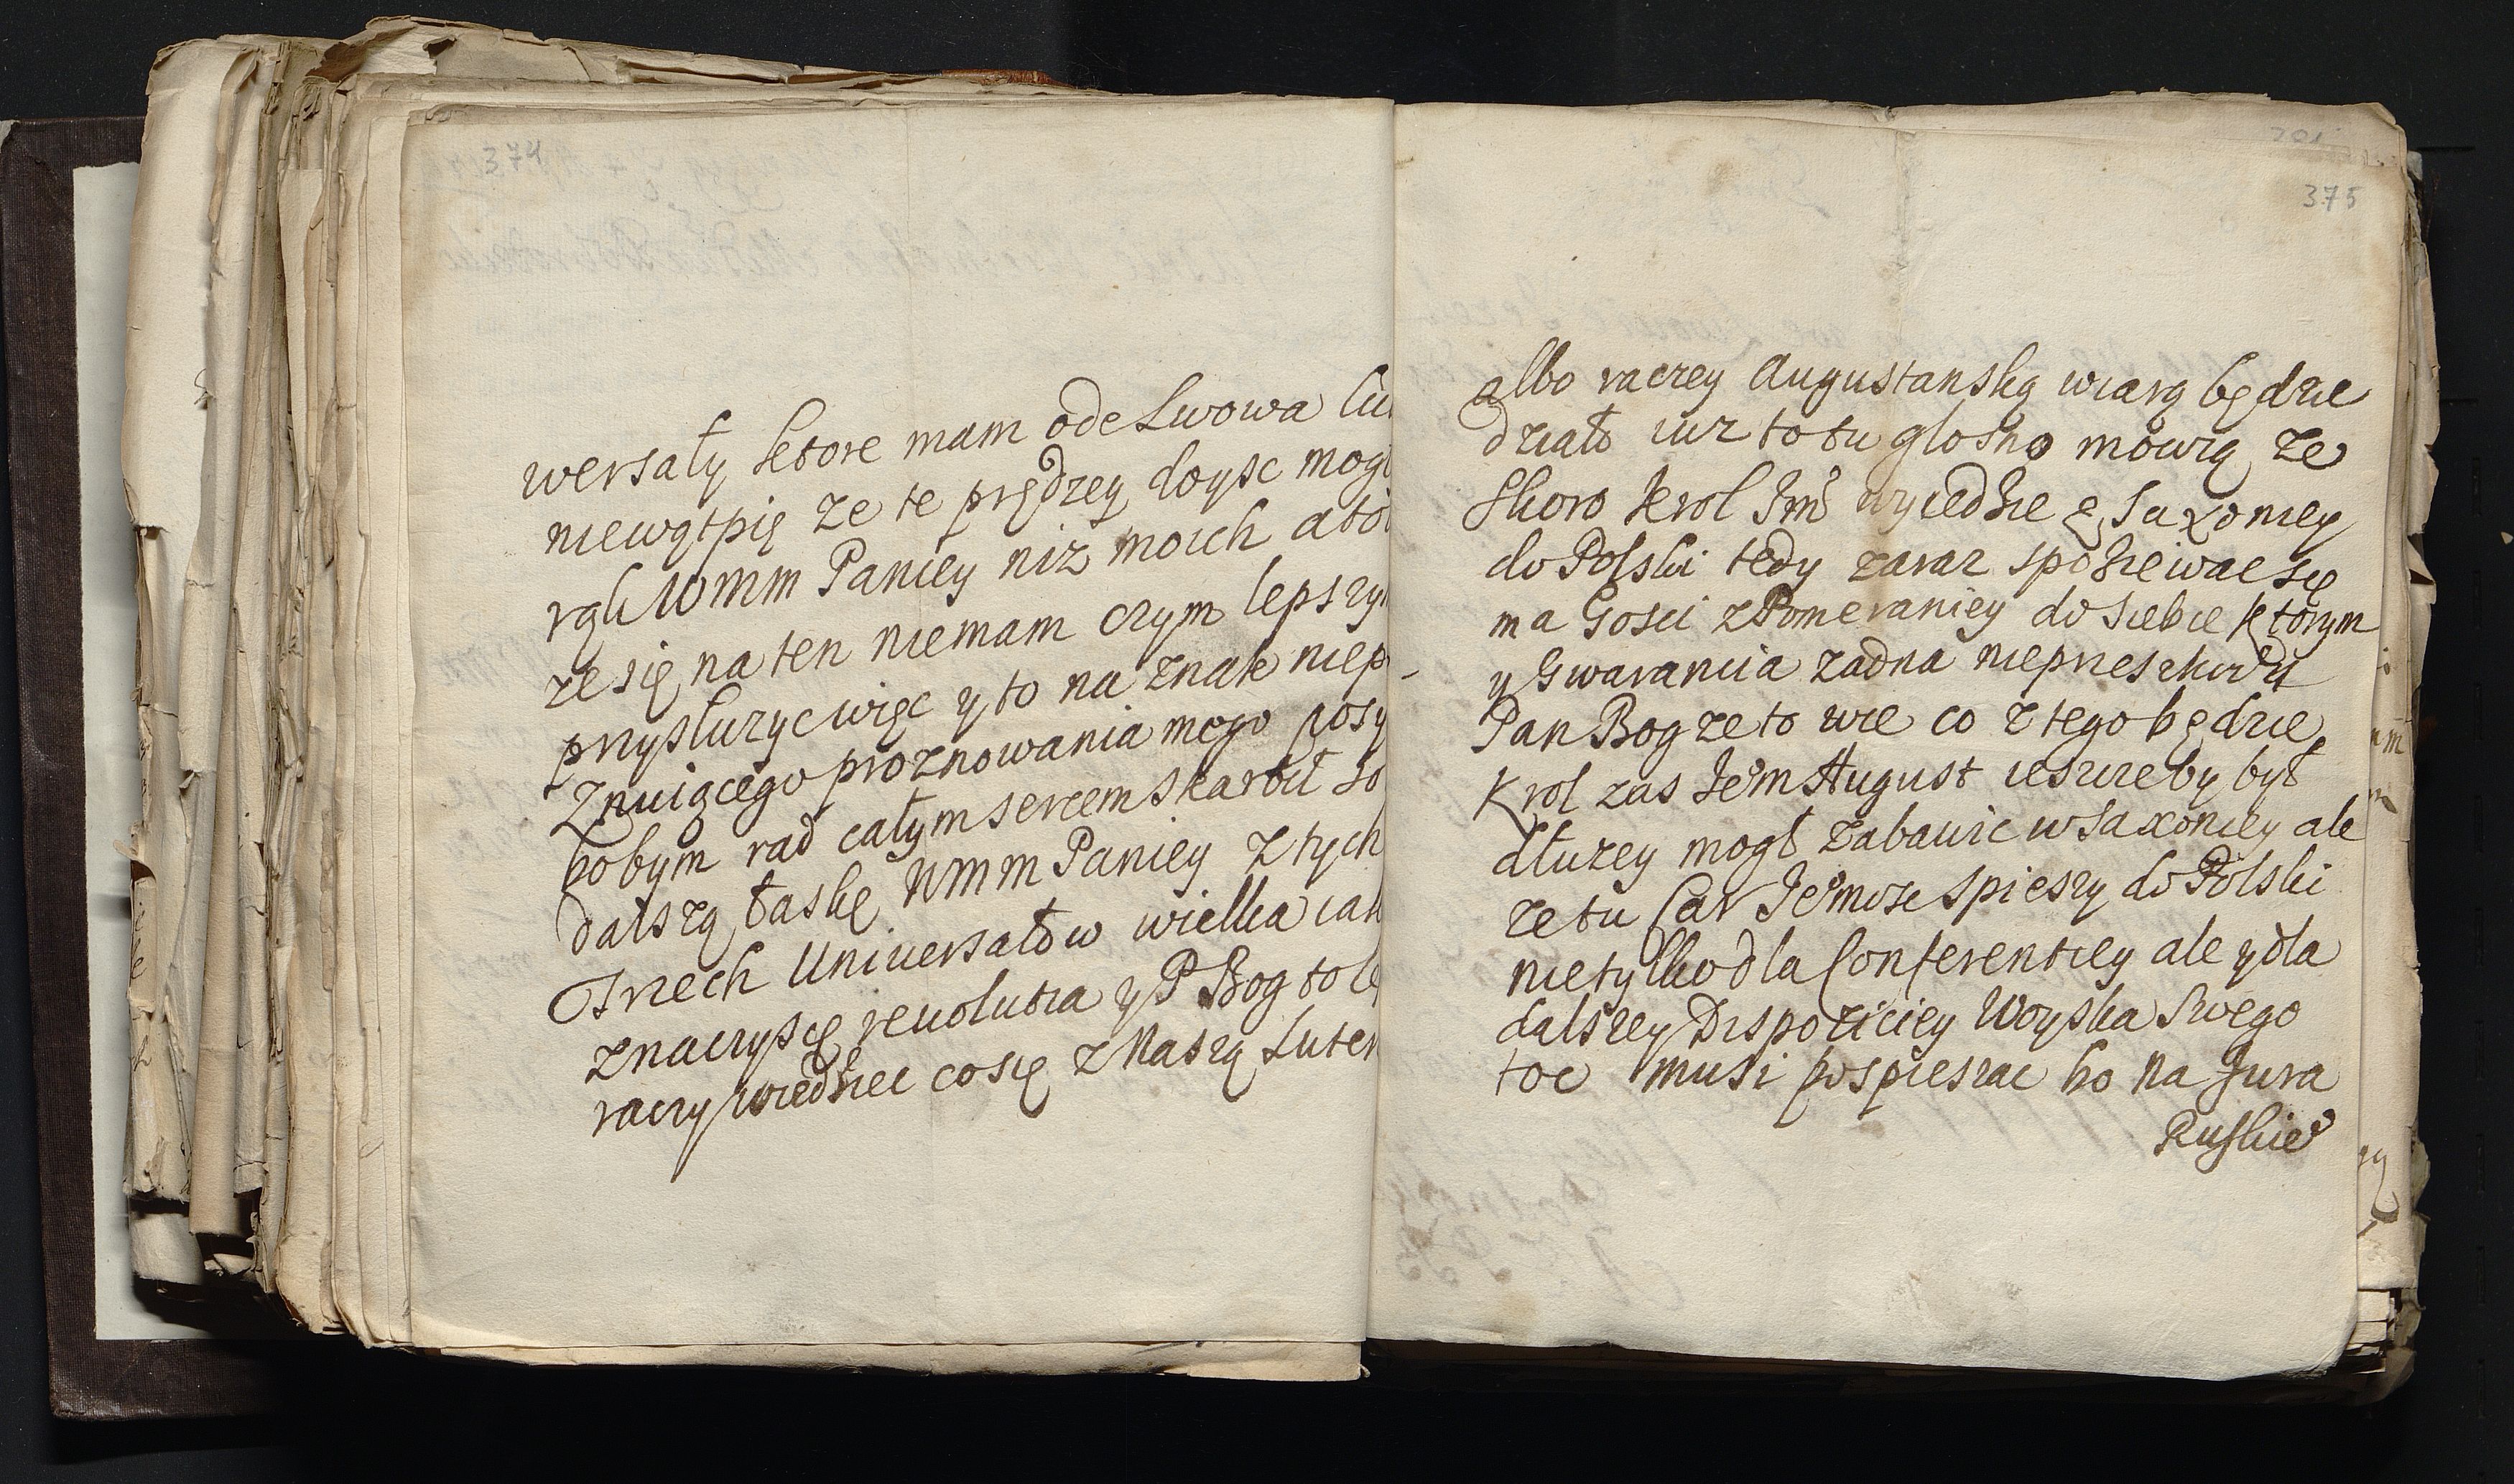 374
wersały ktore mam ode Lwowa lu
niewątpię ze te prędzey doysc mogł
rąk WMM Paniey niz moich a to
ze się na ten niemam czym lepszy
przysłuzyc więc y to na znak niep
znuiącego proznowania mego posy
bobym rad całym sercem skarbił so
dalszą łaskę WMM Paniey z tych
Trzech Uniwersałow wielka iak
znaczy się rewolutia y P Bog to le
raczy wiedziec co się z Naszą Luter
201
375
albo raczey Augustanską wiarą będzie
działo iuz to tu glosno mowią ze
skoro Krol Jm wyiedzie z Saxoniey
do Polski tedy zaraz spodziewac się
ma Gosci z Pomeraniey do siebie ktorym
y Gwarancia zadna nieprzeszkodzi
Pan Bog ze to wie co z tego będzie
Krol zas Jem August ieszcze by był
dłuzey mogł zabawic w Saxoniey ale
ze tu Car Jemosc spieszy do Polski
nietylko dla Conferentiey ale y dla
dalszey Dispoziciey Woyska Swego
toc musi pospieszac bo na Jura
Ruskie